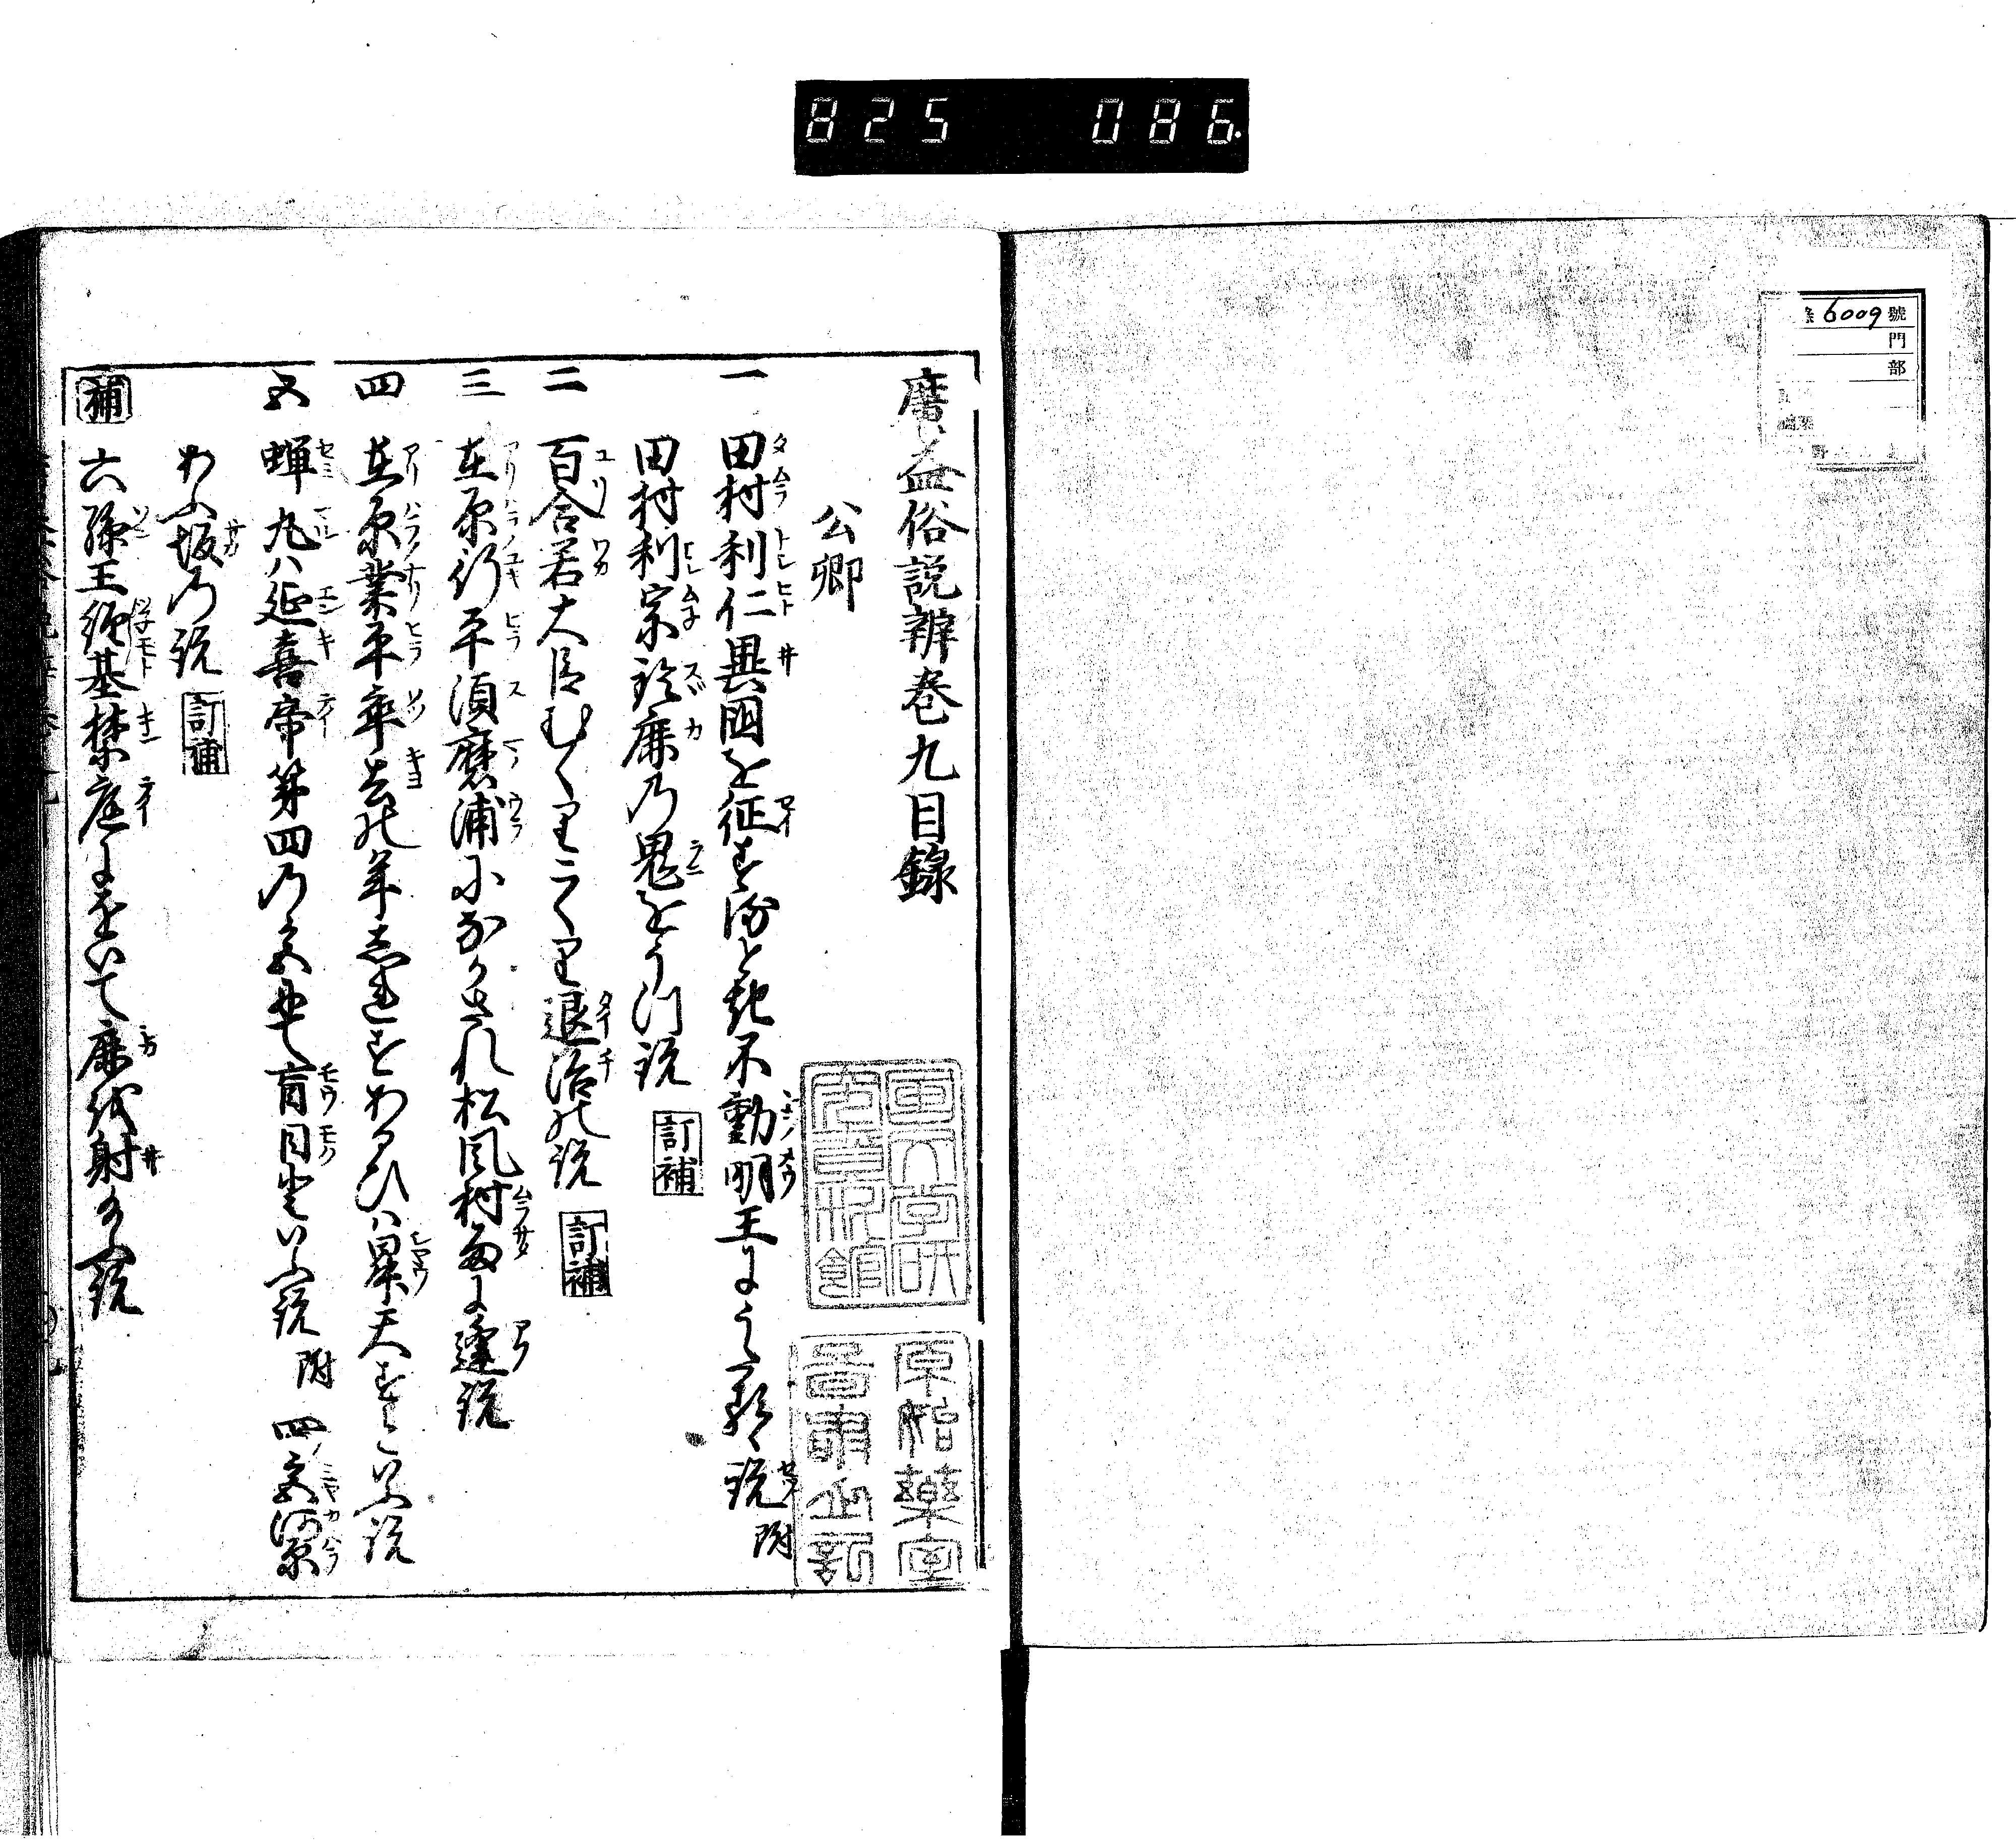 825 086.
6009號
門
部
廣益俗説辨巻九目録
公卿
一 田村利仁異国を征する時と化不動明王にうたるゝ説 附
田村利宗鈴鹿の鬼をうつ説 訂補
二 百合若大臣むくりこくり退治の説 訂補
三 在原行平須磨浦にながされ松風村雨に逢説
四 在原業平卒去の年しれずあるひは昇天すといふ説
五 蝉丸は延喜帝第四の宮にて盲目といふ説 附 四宮河原
あふ坂の説 訂補
補 六孫王経基禁庭にをいて鹿を射給ふ説